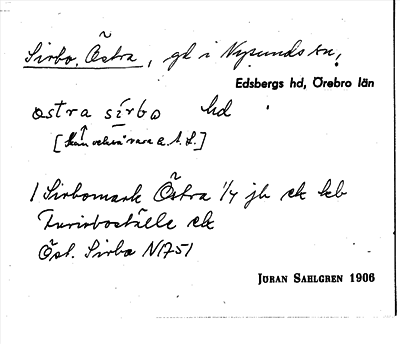 Sirbo, Östra, gd i Nysunds sn,
Edsbergs hd, Örebro län
ostra sírbo hd
vara A. L.]
1 Sirbomark Östra 1/4 jb ek keb
ek
Öst. Sirbo N1751
JÖRAN SAHLGREN 1906